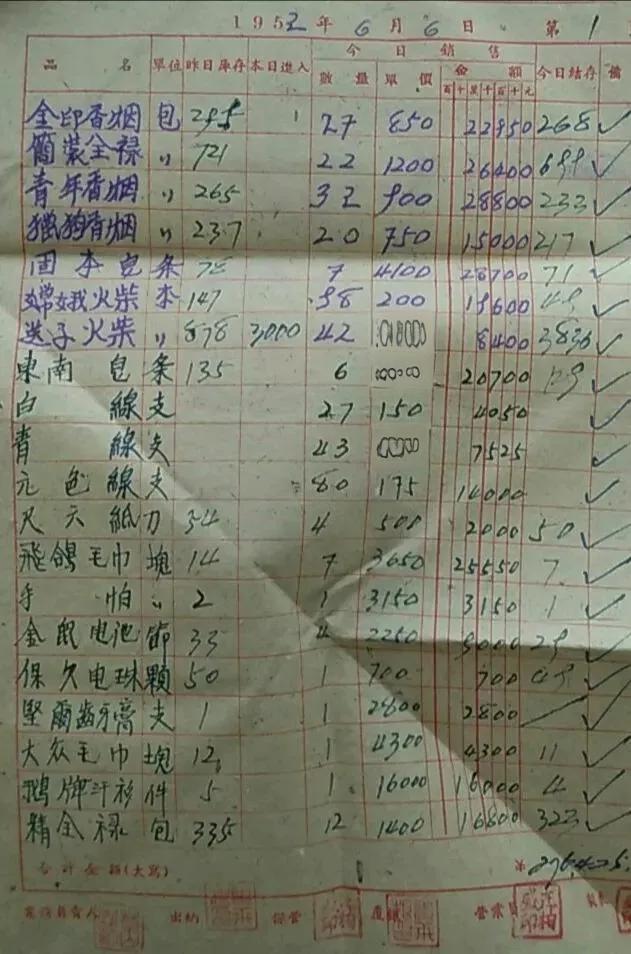 195 年 6 月 6 日 第 1
品 名 單位 昨日庫存 本日進入 今日銷售 今日結存 備
數量 單價 金額
百十萬千百十元
金印香烟 包 295 27 850 22950 268 ✓
簡裝全禄 〃 721 22 1200 26400 699 ✓
青年香烟 〃 265 32 900 28800 233 ✓
獵狗香烟 〃 237 20 750 15000 217 ✓
固本皂 条 78 7 4100 28700 71 ✓
嫦娥火柴 本 147 98 200 19600 49 ✓
送子火柴 〃 878 3,000 42 8400 3836 ✓
東南皂 条 135 6 20700 129 ✓
白線 支 27 150 4050 ✓
青線 支 43 7525 ✓
元色線 支 80 175 14000 ✓
尺六紙 刀 54 4 500 2000 50 ✓
飛鴿毛巾 塊 14 7 3650 25550 7 ✓
手怕 〃 2 1 3150 3150 1 ✓
金鼠电池 節 33 4 2250 9000 29 ✓
保久电珠 顆 50 1 700 700 49 ✓
堅爾齒牙膏 支 1 1 2800 2800 ✓
大众毛巾 塊 12 1 4300 4300 11 ✓
鵝牌汗衫 件 5 1 16000 16000 4 ✓
精全禄 包 335 12 1400 16800 323 ✓
合計金額(大寫) 276,425
業務負責人 出納 保管 營業員